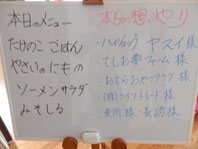 本日のメニュー
たけのこ ごはん
やさいの にもの
ソーメンサラダ
みそしる
本日の想いやり
・ハイカラ ヤスイ様
・てしお夢ファーム 様
・おてらおやつクラブ 様
・(株)クラフトシート 様
・東岡様・長嶋様